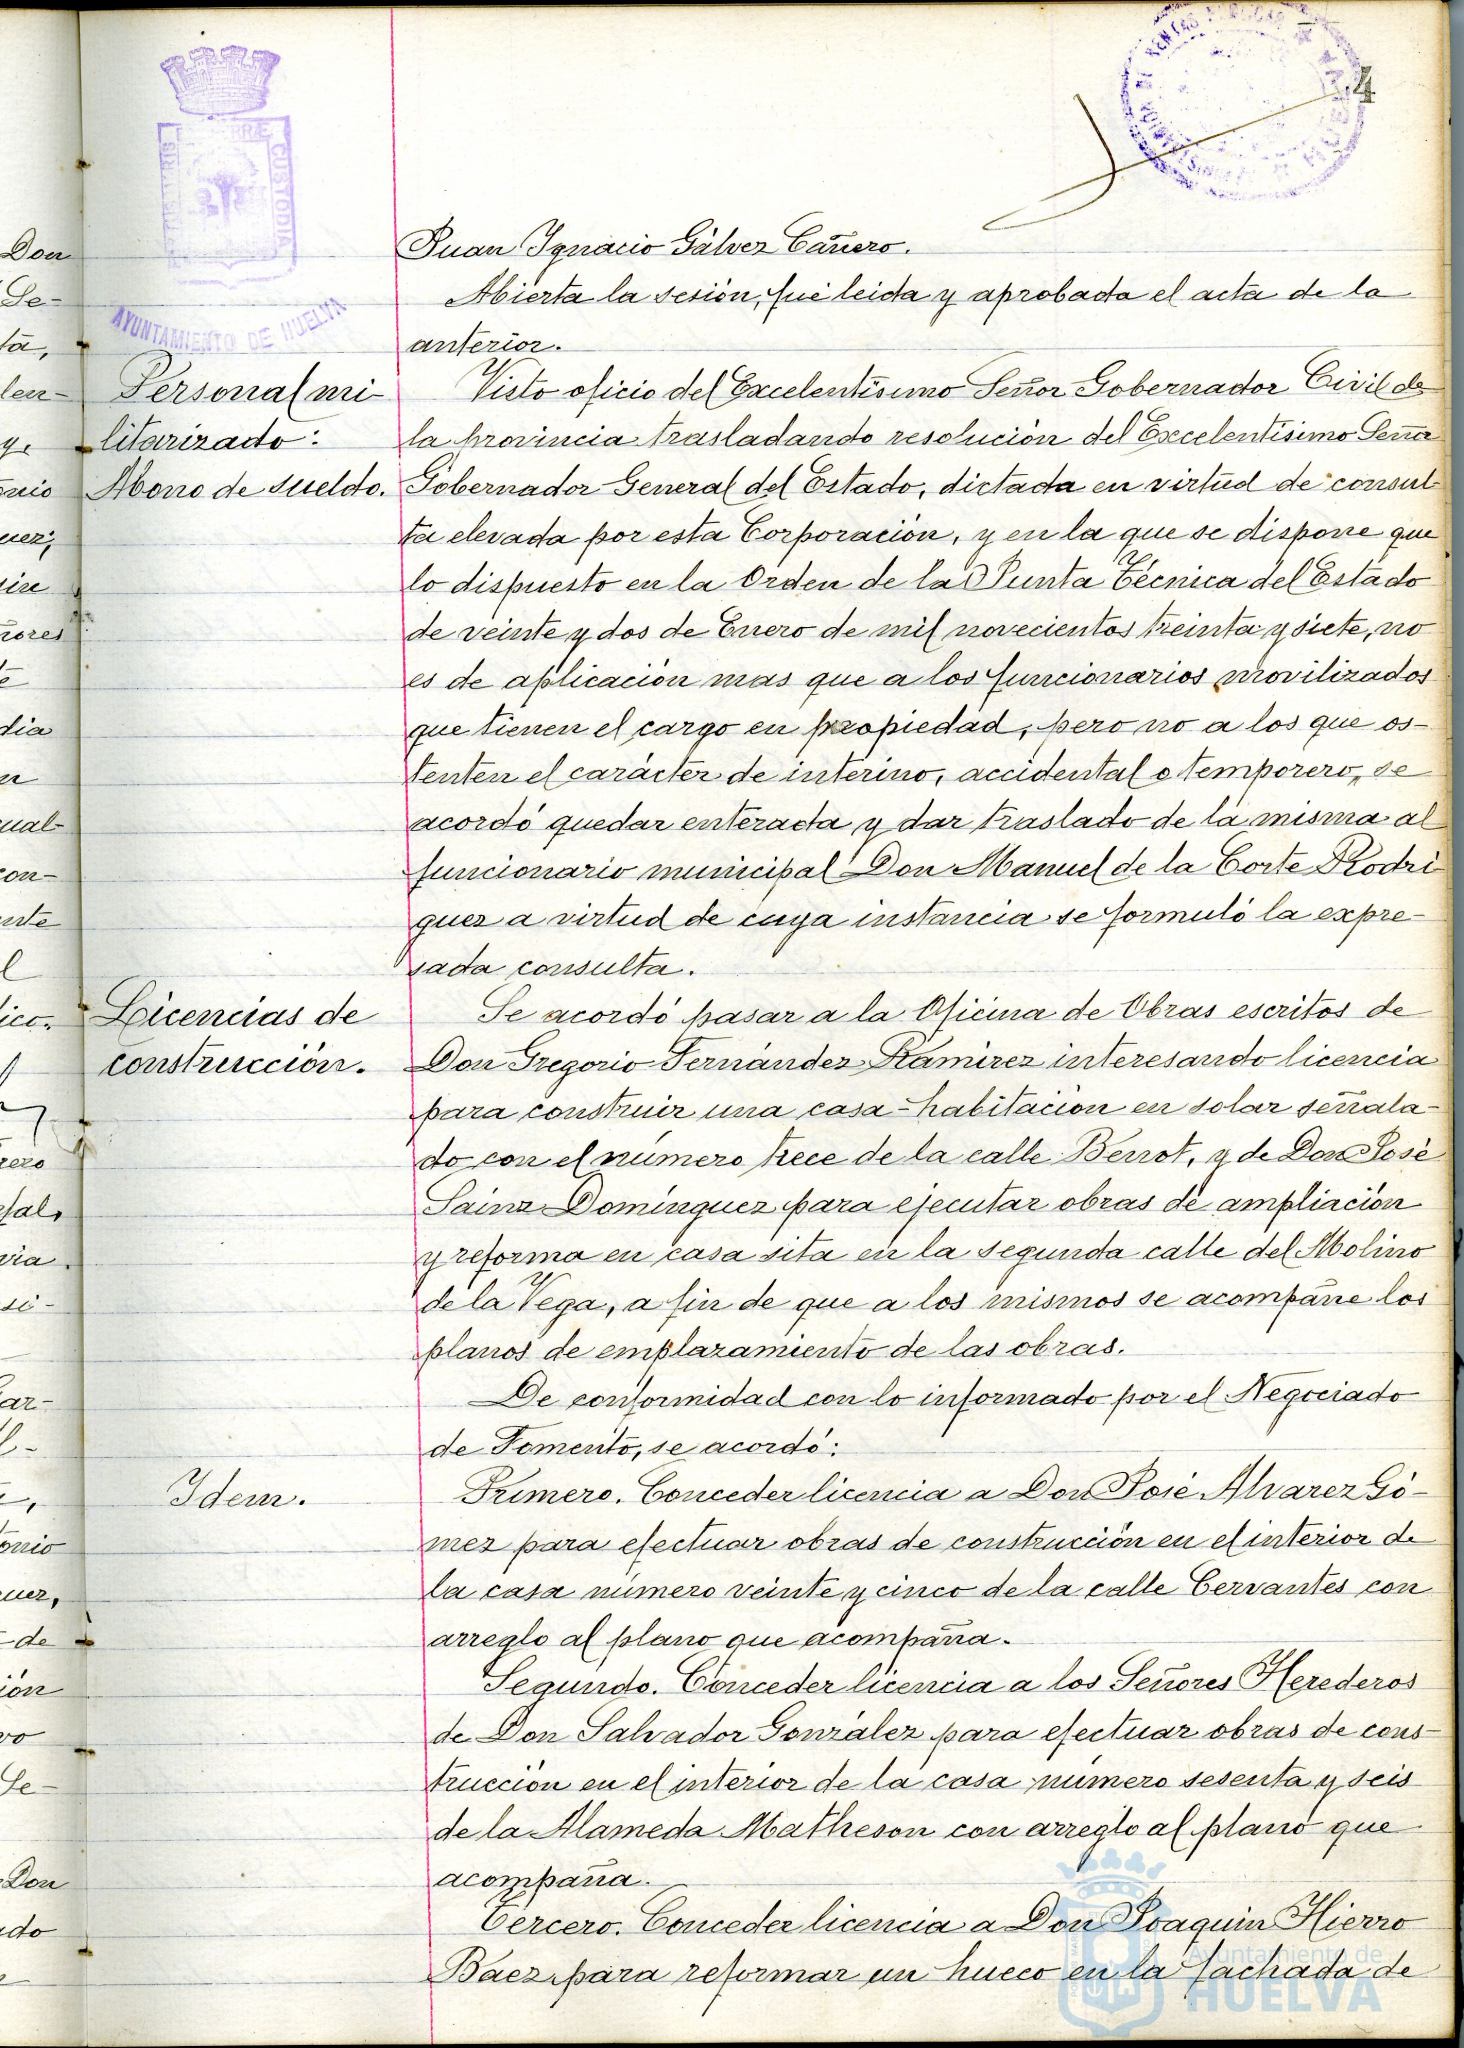 4
AYUNTAMIENTO DE HUELVA
CUSTODIA
Juan Ignacio Gálvez Cañero.
Abierta la sesión, fué leida y aprobada el acta de la
anterior.
Personal mi-
litarizado:
Abono de sueldo.
Visto oficio del Excelentísimo Señor Gobernador Civil de
la provincia trasladando resolución del Excelentísimo Señor
Gobernador General del Estado, dictada en virtud de consul-
ta elevada por esta Corporación, y en la que se dispone que
lo dispuesto en la Orden de la Junta Técnica del Estado
de veinte y dos de Enero de mil novecientos treinta y siete, no
es de aplicación mas que a los funcionarios movilizados
que tienen el cargo en propiedad, pero no a los que os-
tenten el carácter de interino, accidental o temporero, se
acordó quedar enterada y dar traslado de la misma al
funcionario municipal Don Manuel de la Corte Rodri
guez a virtud de cuya instancia se formuló la expre-
sada consulta.
Licencias de
construcción.
Se acordó pasar a la Oficina de Obras escritos de
Don Gregorio Fernández Ramírez interesando licencia
para construir una casa-habitación en solar señala-
do con el número trece de la calle Berrot, y de Don José
Sainz Domínguez para ejecutar obras de ampliación
y reforma en casa sita en la segunda calle del Molino
de la Vega, a fin de que a los mismos se acompañe los
planos de emplazamiento de las obras.
De conformidad con lo informado por el Negociado
de Fomento, se acordó:
Idem.
Primero. Conceder licencia a Don José Alvarez Gó-
mez para efectuar obras de construcción en el interior de
la casa número veinte y cinco de la calle Cervantes con
arreglo al plano que acompaña.
Segundo. Conceder licencia a los Señores Herederos
de Don Salvador González para efectuar obras de cons-
trucción en el interior de la casa número sesenta y seis
de la Alameda Matheson con arreglo al plano que
acompaña.
Tercero. Conceder licencia a Don Joaquin Hierro
Baez para reformar un hueco en la fachada de
Ayuntamiento de
HUELVA